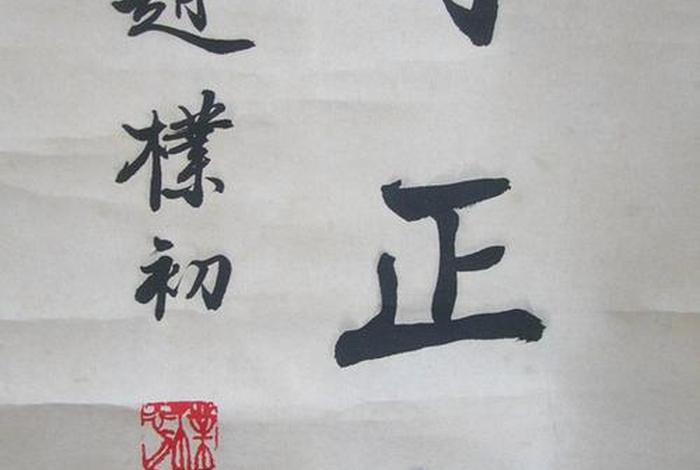 正
趙樸初